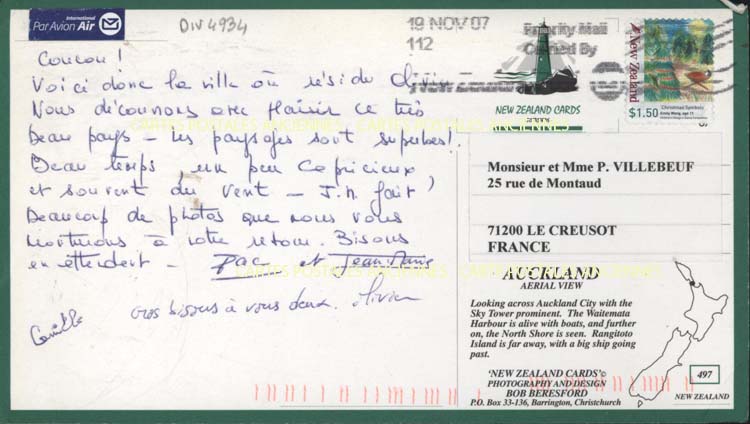 International
Par Avion Air
DIV 4934
19 NOV 07
112
Priority Mail
Carried By
New Zealand
New Zealand
Christmas Symbols
$1.50
NEW ZEALAND CARDS
Coucou !
Voici donc la ville où réside Olivier
Nous découvrons avec plaisir ce très
beau pays - les paysages sont superbes !
Beau temps, un peu capricieux
et souvent du vent - J.M fait
beaucoup de photos que nous vous
montrerons à notre retour. Bisous
en attendant - et Jean Marie
Gros bisous à vous deux. Olivier
Camille
CARTES POSTALES ANCIENNES - CARTES POSTALES ANCIENNES
CARTES POSTALES ANCIENNES - CARTES POSTALES ANCIENNES
Monsieur et Mme P. VILLEBEUF
25 rue de Montaud
71200 LE CREUSOT
FRANCE
AUCKLAND
AERIAL VIEW
Looking across Auckland City with the
Sky Tower prominent. The Waitemata
Harbour is alive with boats, and further
on, the North Shore is seen. Rangitoto
Island is far away, with a big ship going
past.
'NEW ZEALAND CARDS'©
PHOTOGRAPHY AND DESIGN
BOB BERESFORD
P.O. Box 33-136, Barrington, Christchurch
497
NEW ZEALAND